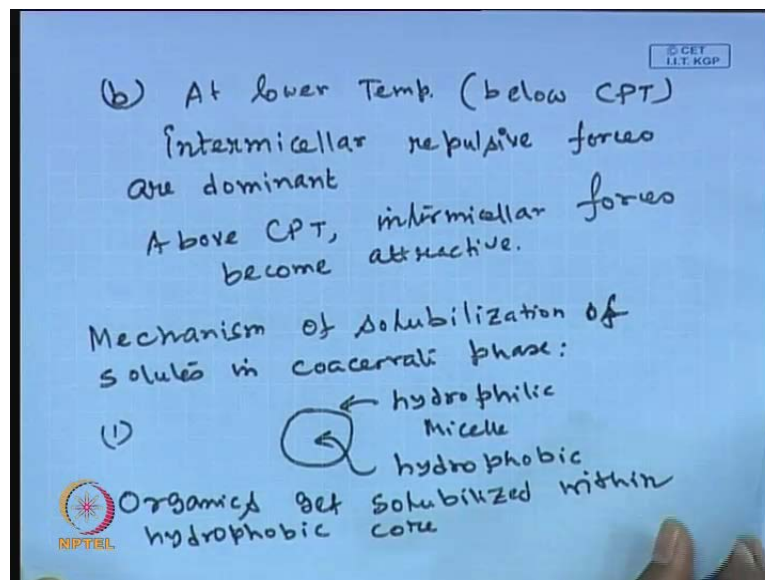 © CET
I.I.T. KGP
(b) At lower Temp. (below CPT)
Intermicellar repulsive forces
are dominant
Above CPT, intermicellar forces
become attractive.
Mechanism of solubilization of
solutes in coacervate phase:
(1)
hydrophilic
Micelle
hydrophobic
Organics get solubilized within
hydrophobic core
NPTEL